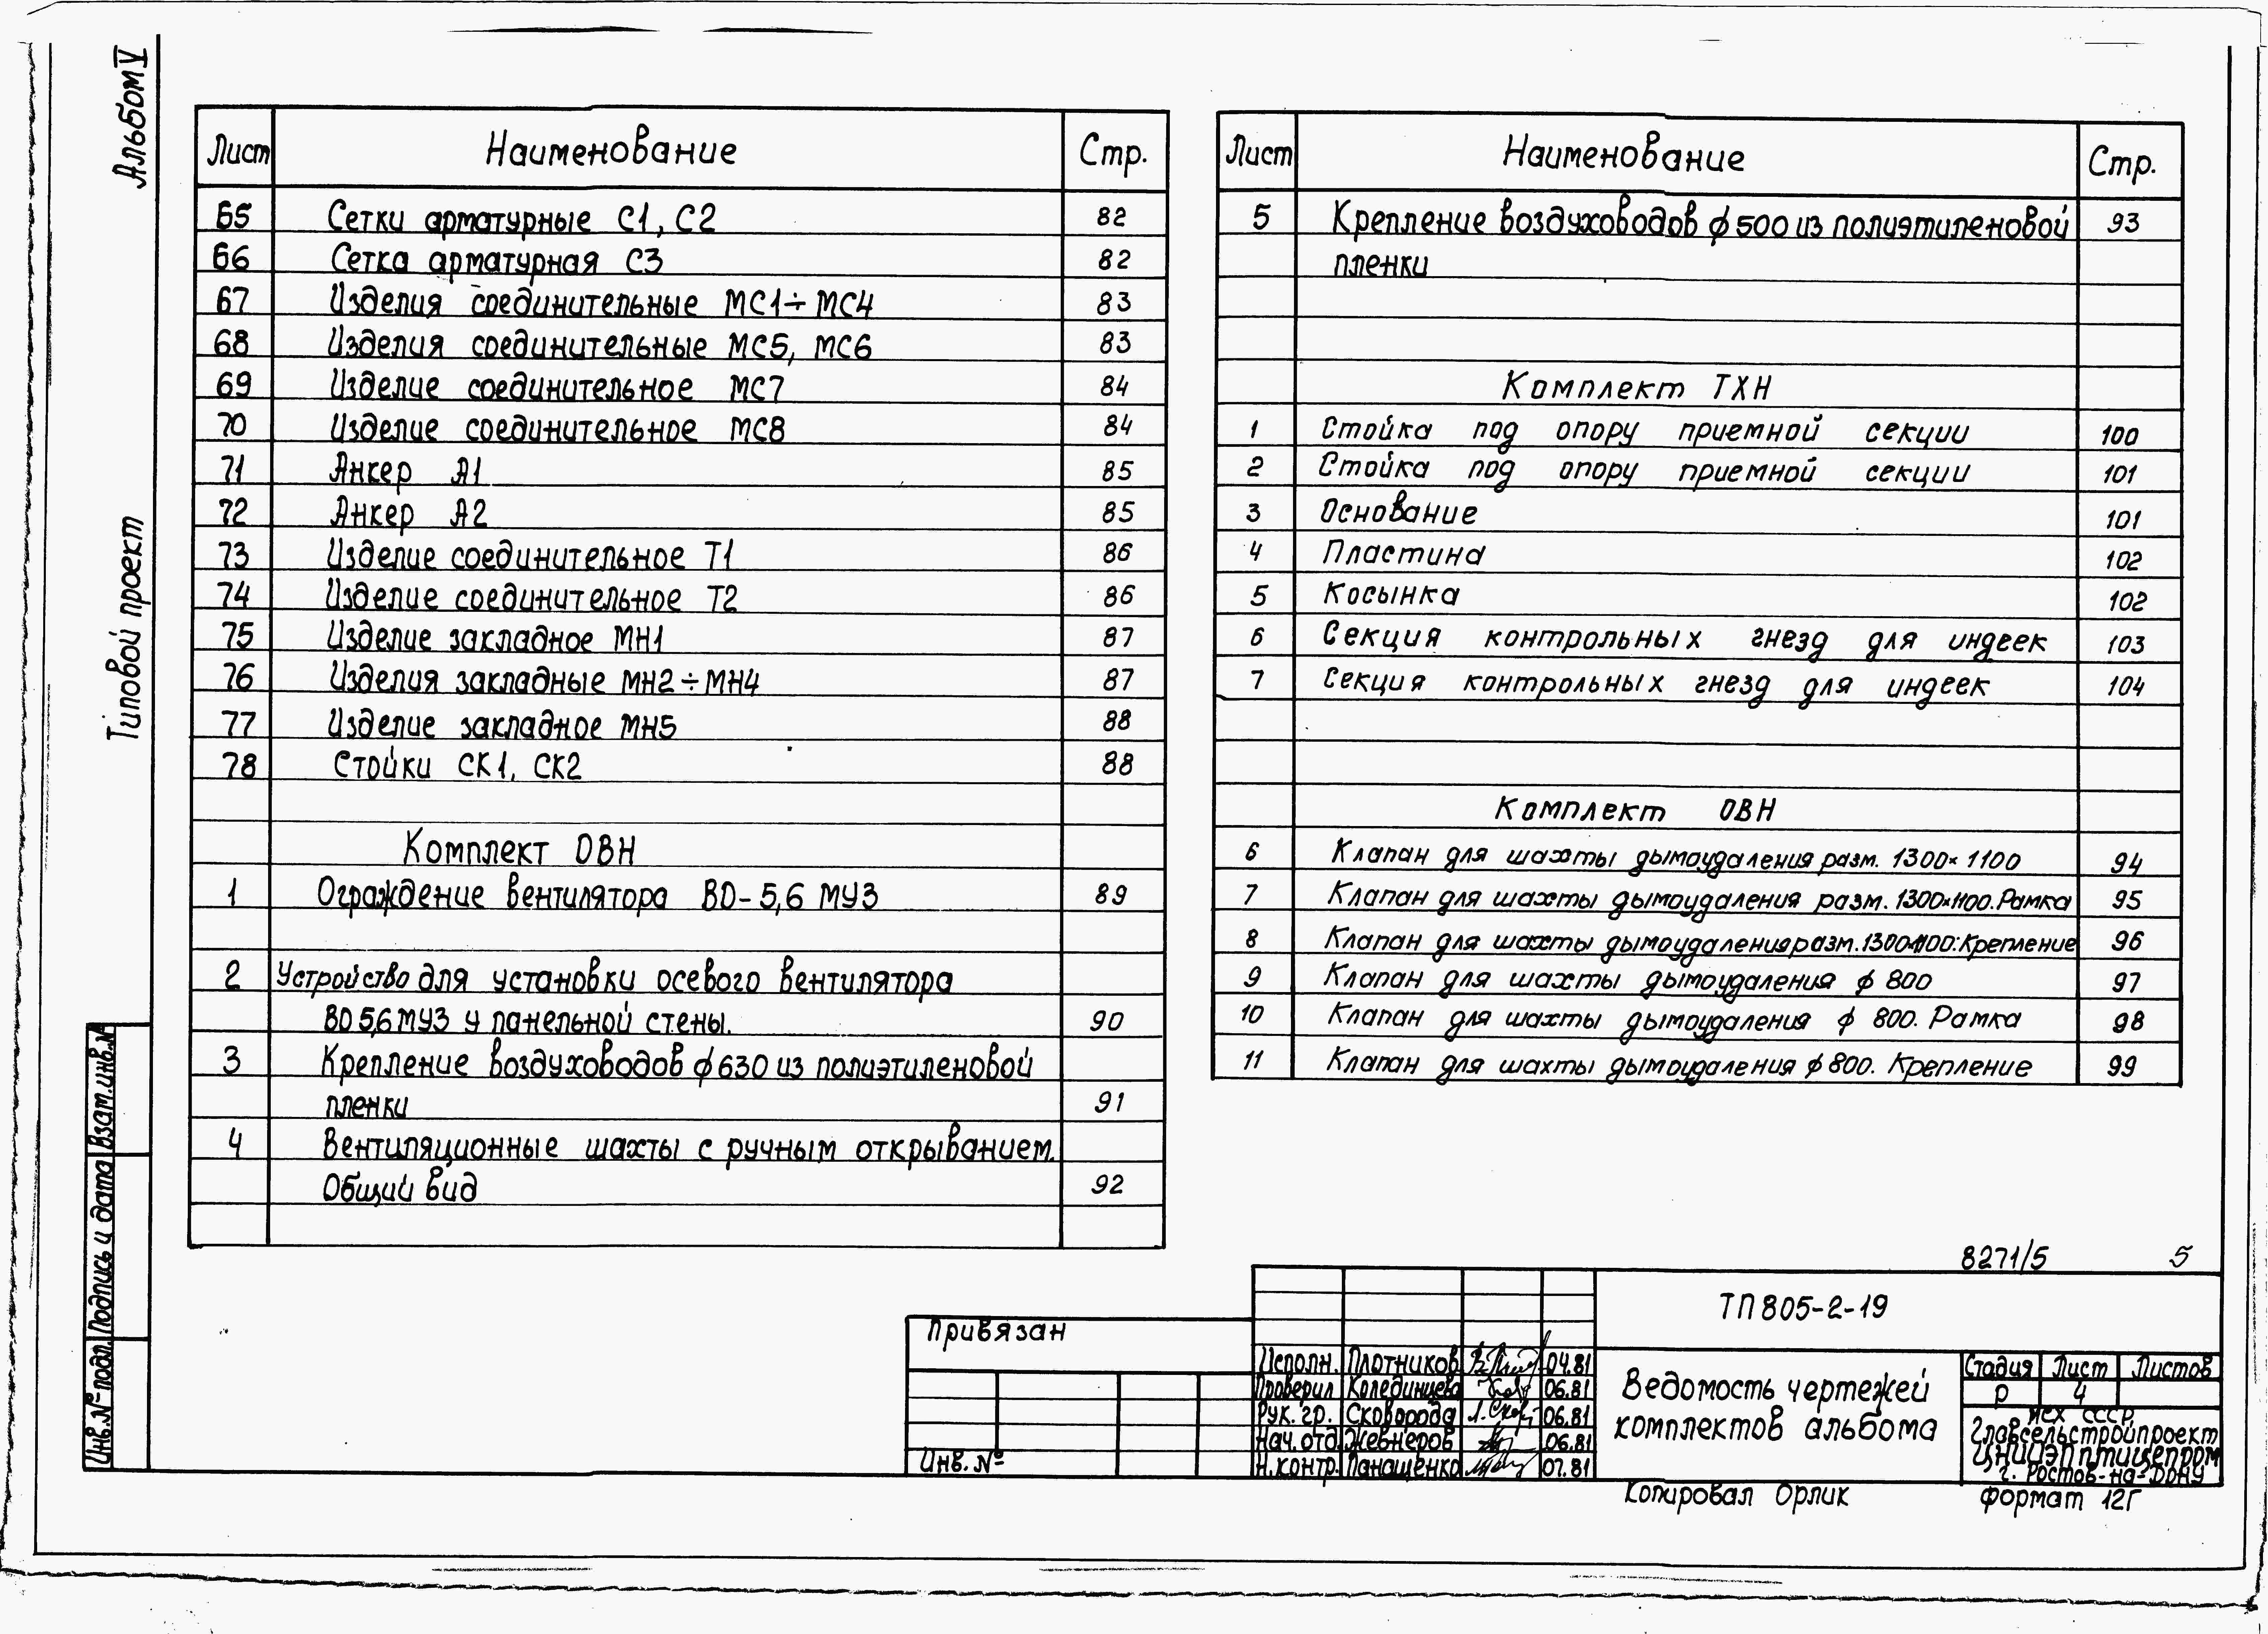 Альбом V
Типовой проект
Лист Наименование Стр.
65 Сетки арматурные С1, С2 82
66 Сетка арматурная С3 82
67 Изделия соединительные МС1÷МС4 83
68 Изделия соединительные МС5, МС6 83
69 Изделие соединительное МС7 84
70 Изделие соединительное МС8 84
71 Анкер А1 85
72 Анкер А2 85
73 Изделие соединительное Т1 86
74 Изделие соединительное Т2 86
75 Изделие закладное МН1 87
76 Изделия закладные МН2÷МН4 87
77 Изделие закладное МН5 88
78 Стойки СК1, СК2 88
Комплект ОВН
1 Ограждение вентилятора ВО-5,6 МУ3 89
2 Устройство для установки осевого вентилятора
ВО 5,6 МУ3 у панельной стены. 90
3 Крепление воздуховодов ф630 из полиэтиленовой
пленки 91
4 Вентиляционные шахты с ручным открыванием.
Общий вид 92
Лист Наименование Стр.
5 Крепление воздуховодов ф500 из полиэтиленовой 93
пленки
Комплект ТХН
1 Стойка под опору приемной секции 100
2 Стойка под опору приемной секции 101
3 Основание 101
4 Пластина 102
5 Косынка 102
6 Секция контрольных гнезд для индеек 103
7 Секция контрольных гнезд для индеек 104
Комплект ОВН
6 Клапан для шахты дымоудаления разм. 1300×1100 94
7 Клапан для шахты дымоудаления разм. 1300×1100. Рамка 95
8 Клапан для шахты дымоудаления разм. 1300×1100. Крепление 96
9 Клапан для шахты дымоудаления ф 800 97
10 Клапан для шахты дымоудаления ф 800. Рамка 98
11 Клапан для шахты дымоудаления ф 800. Крепление 99
8271/5 5
ТП 805-2-19
Привязан
Инв. №
Исполн. Плотников 04.81
Проверил Колединцева 06.81
Рук. гр. Сковорода 06.81
Нач. отд. Жевнеров 06.81
Н.контр. Панащенко 07.81
Ведомость чертежей
комплектов альбома
Стадия Лист Листов
Р 4
МСХ СССР
Главсельстройпроект
ЦНИИЭПптицепром
г. Ростов-на-Дону
Копировал Орлик
формат 12Г
Инв. № подл. Подпись и дата Взам. инв. №